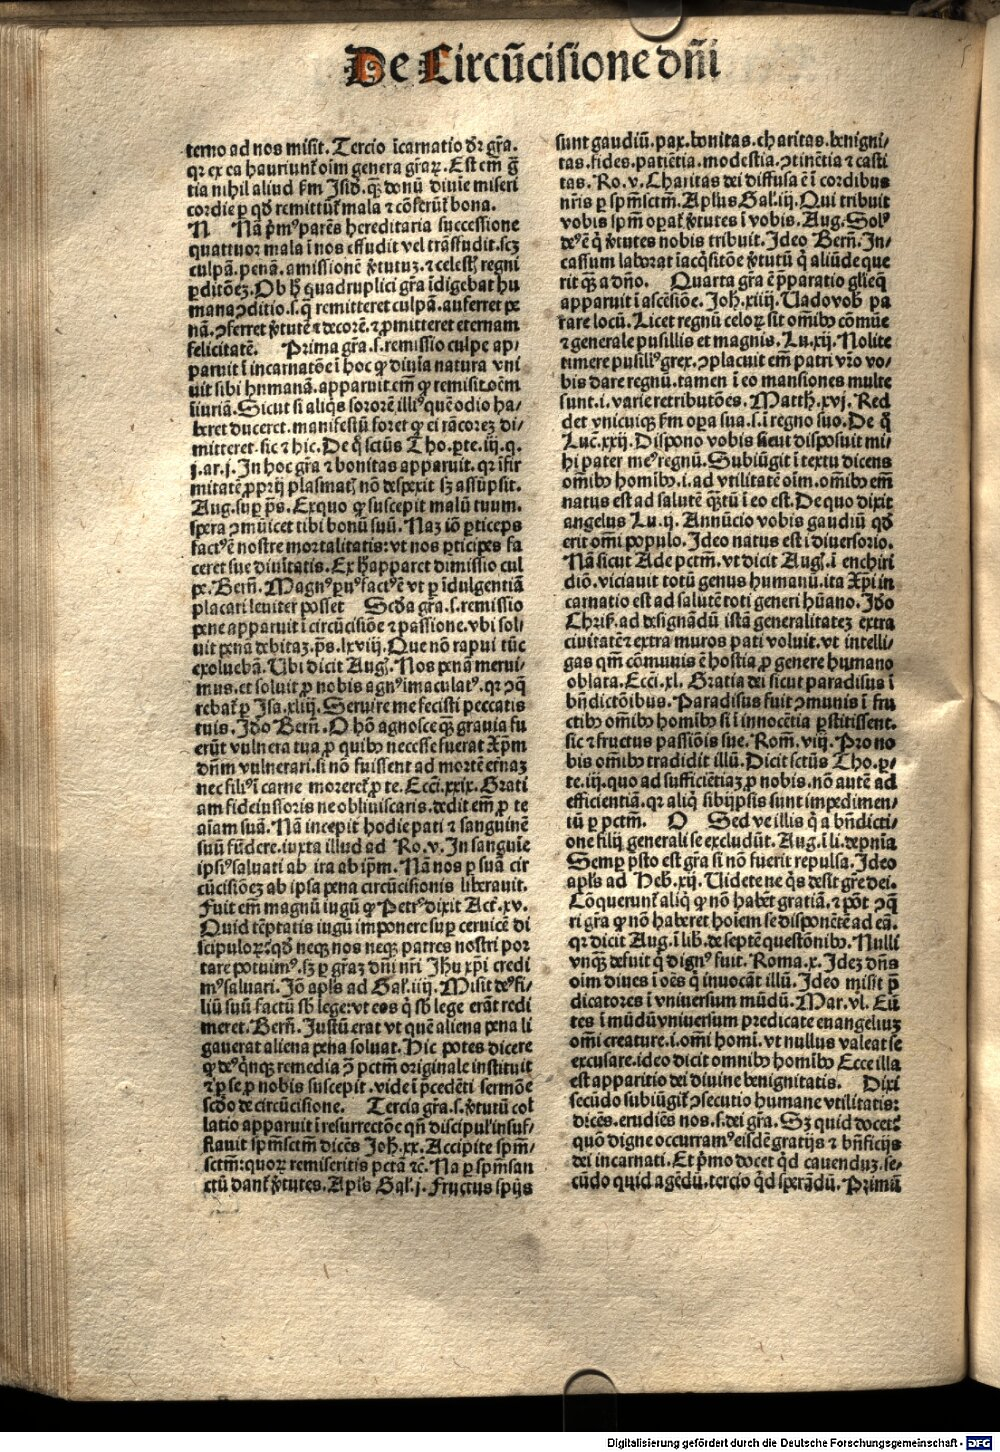 De Circūcisione dn̄i
terno ad nos misit. Tercio īcarnatio dr̄ gr̄a.
qr ex ea hauriunt̄ oīm genera gr̄aꝝ. Est em̄ ḡ
tia nihil aliud ẜm Isid̄. qꝫ donū diuie miseri
cordie ꝑ qd̄ remittūt̄ mala ⁊ cōferūt̄ bona.
N Nā pͥmꝰ parēs hereditaria successione
quattuor mala ī nos effudit vel trāsfudit. scꝫ
culpā. penā. amissionē ꝟtutuꝫ. ⁊ celesti regni
ꝑditōeꝫ. Ob h̄ quadruplici gr̄a īdigebat hu
mana ↄditio. s. q̄ remitteret culpā. auferret pe
nā. ↄferret ꝟtutē ⁊ decorē. ⁊ ꝓmitteret eternam
felicitatē. Prima gr̄a. s. remissio culpe ap-
paruit ī incarnatōe ī hoc ꝙ diuīa natura vni
uit sibi humanā. apparuit em̄ ꝙ remisit oēm
īiuriā. Sicut si aliqͥs sororē illiꝰ quē odio ha-
beret duceret. manifestū foret ꝙ ei rācoreꝫ di-
mitteret. sic ⁊ hic. De q̄ sctūs Tho. ꝑte. iij. q.
j. ar. j. In hoc gr̄a ⁊ bonitas apparuit. qr īfir
mitatē ꝓprij plasmatꝭ nō despexit sꝫ assūpsit.
Aug. suꝑ ps̄. Exquo ꝙ suscepit malū tuum.
spera ↄmūicet tibi bonū suū. Naꝫ iō ꝑticeps
factꝰ ē nostre mortalitatis: vt nos ꝑticipes fa
ceret sue diuītatis. Ex h̄ apparet dimissio cul
pe. Bern̄. Magnꝰ ꝑuꝰ factꝰ ē vt ꝑ īdulgentiā
placari leuiter posset Scd̄a gr̄a. s. remissio
pene apparuit ī circūcisiōe ⁊ passione. vbi sol-
uit penā debitaꝫ. ps̄. lxviij. Que nō rapui tūc
exoluebā. Ubi dicit Aug. Nos penā merui-
mus. et soluit ꝓ nobis agnꝰ īmaculatꝰ. qr ↄq̄
rebat̄ ꝑ Isa. xliij. Seruire me fecisti peccatis
tuis. Idō Bern̄. O hō agnosce qꝫ grauia fu
erūt vulnera tua ꝓ quibꝰ necesse fuerat Xp̄m
dn̄m vulnerari. si nō fuissent ad mortē et̄naꝫ
nec filiꝰ ī carne moreret̄ ꝓ te. Ecci. xxix. Grati
am fideiussoris ne obliuiscaris. dedit em̄ ꝓ te
aīam suā. Nā incepit hodie pati ⁊ sanguinē
suū fūdere. iuxta illud ad Ro. v. In sanguīe
ipsiꝰ saluati ab ira ab ip̄m. Nā nos ꝑ suā cir
cūcisiōeꝫ ab ipsa pena circūcisionis liberauit.
Fuit em̄ magnū iugū ꝙ Petrꝰ dixit Act̄. xv.
Quid tēptatis iugū imponere suꝑ ceruicē di
scipuloꝝ: qd̄ neqꝫ nos neqꝫ patres nostri por
tare potuimꝰ. sꝫ ꝑ gr̄aꝫ dn̄i nr̄i Jhu xp̄i credi
mꝰ saluari. Iō ap̄ls ad Gal. iiij. Misit deꝰ fi-
liū suū factū sb̄ lege: vt eos q̄ sb̄ lege erāt redi
meret. Bern̄. Justū erat vt quē aliena pena li
gauerat aliena pena soluat. Hic potes dicere
ꝙ deꝰ qͥnqꝫ remedia ↄ̄ pctm̄ originale instituit
⁊ ꝑ se ꝓ nobis suscepit. vide ī p̄cedēti sermōe
scd̄o de circūcisione. Tercia gr̄a. s. ꝟtutū col
latio apparuit ī resurrectōe qn̄ discipulꝭ insuf-
flauit spm̄sctm̄ dicēs Joh. xx. Accipite spm̄-
sctm̄: quoꝝ remiseritis pctā ⁊c. Nā ꝑ spm̄san
ctū dant̄ ꝟtutes. Apl̄s Gal. j. Fructus spūs
sunt gaudiū. pax. bonitas. charitas. benigni-
tas. fides. patiētia. modestia. ↄtinētia ⁊ casti
tas. Ro. v. Charitas dei diffusa ē ī cordibus
nr̄is ꝑ spm̄sctm̄. Apl̄us Gal. iij. Qui tribuit
vobis spm̄ oꝑat̄ ꝟtutes ī vobis. Aug. Solꝰ
deꝰ ē q̄ ꝟtutes nobis tribuit. Ideo Bern̄. In-
cassum laborat īacqͥsitōe ꝟtutū q̄ aliūde que
rit qꝫ a dn̄o. Quarta gr̄a ē p̄paratio gl̄ieq̄
apparuit ī ascēsiōe. Joh. xiiij. Uado vob̄ pa
rare locū. Licet regnū celoꝝ sit oīmibꝰ cōmūe
⁊ generale pusillis et magnis. Lu. xij. Nolite
timere pusillꝰ grex. ↄplacuit em̄ patri vr̄o vo-
bis dare regnū. tamen ī eo mansiones multe
sunt. i. varie retributōes. Matth. xvj. Red
det vnicuiqꝫ ẜm oꝑa sua. s. ī regno suo. De q̄
Luc. xxij. Dispono vobis sicut disposuit mi-
hi pater meꝰ regnū. Subiūgit ī textu dicens
om̄ibꝰ homībꝰ. i. ad vtilitatē oīm. om̄ibꝰ em̄
natus est ad salutē qꝫtū ī eo est. De quo dixit
angelus Lu. ij. Annūcio vobis gaudiū qd̄
erit om̄i populo. Ideo natus est ī diuersorio.
Nā sicut Ade pctm̄. vt dicit Aug. ī enchiri
diō. viciauit totū genus humanū. ita Xp̄i in
carnatio est ad salutē toti generi hūano. Idō
Christ̄. ad designādū istā generalitateꝫ extra
ciuitatē ⁊ extra muros pati voluit. vt intelli-
gas qm̄ cōmunis ē hostia ꝓ genere humano
oblata. Ecci. xl. Gratia dei sicut paradisus ī
bn̄dictōibus. Paradisus fuit ↄmunis ī fru
ctibꝰ om̄ibꝰ homībꝰ si ī innocētia ꝑstitissent.
sic ⁊ fructus passiōis sue. Rom̄. viij. Pro no
bis om̄ibꝰ tradidit illū. Dicit sctūs Tho. ꝑ-
te. iij. quo ad sufficiētiaꝫ ꝓ nobis. nō autē ad
efficientiā. qr aliqͥ sibijpsis sunt impedimen-
tū ꝑ pctm̄. O Sed ve illis q̄ a bn̄dicti-
one filij generali se excludūt. Aug. ī li. de pn̄ia
Semꝑ p̄sto est gr̄a si nō fuerit repulsa. Ideo
apl̄s ad Heb. xij. Uidete ne qͥs desit gr̄e dei.
Cōquerunt̄ aliqͥ ꝙ nō habēt gratiā. ⁊ pōt ↄq̄
ri gr̄a ꝙ nō haberet hoīem se disponētē ad eā.
qr dicit Aug. ī lib. de septē questōnibꝰ. Nulli
vnqꝫ defuit q̄ dignꝰ fuit. Roma. x. Ideꝫ dn̄s
oīm diues ī oēs q̄ inuocāt illū. Ideo misit p̄
dicatores ī vniuersum mūdū. Mar. vl. Eū
tes ī mūdū vniuersum predicate euangeliuꝫ
om̄i creature. i. om̄i homī. vt nullus valeat se
excusare. ideo dicit omnibꝰ homībꝰ Ecce illa
est apparitio dei diuine benignitatis. Dixi
secūdo subiūgit̄ ↄsecutio humane vtilitatis:
dicēs. erudiēs nos. s. dei gr̄a. Sꝫ quid docet:
quō digne occurramꝰ eisdē gratijs ⁊ bn̄ficijs
dei incarnati. Et pͥmo docet qͥd cauenduꝫ. se-
cūdo quid agēdū. tercio qͥd sperādū. Primū
Digitalisierung gefördert durch die Deutsche Forschungsgemeinschaft - DFG